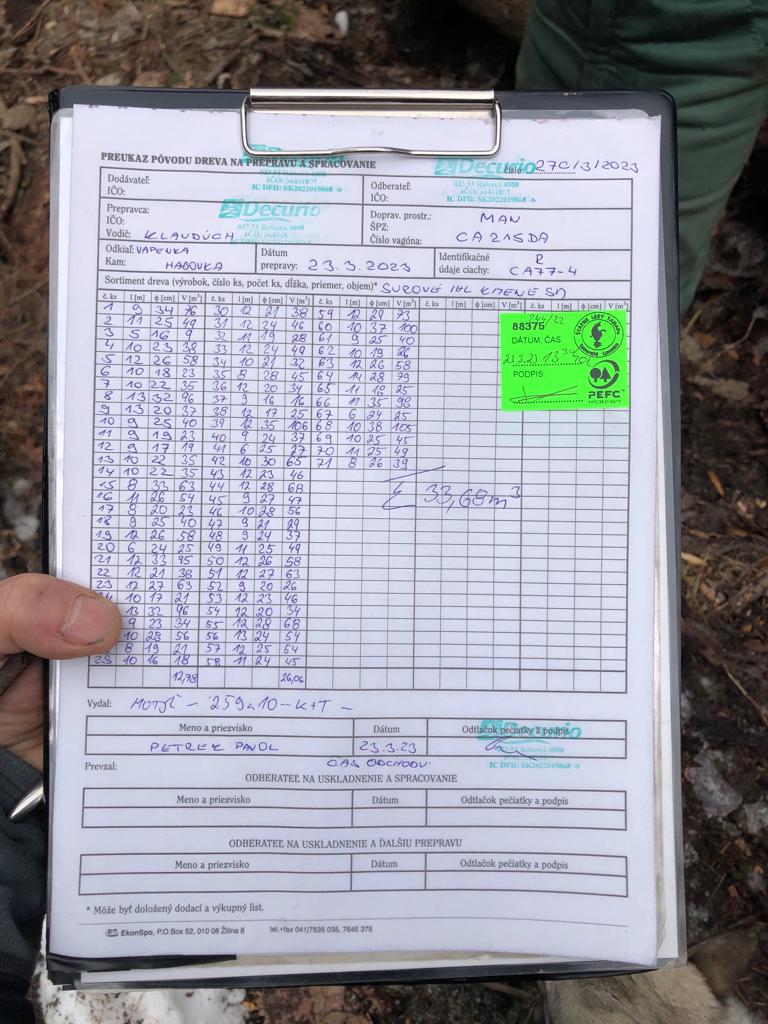 PREUKAZ PÔVODU DREVA NA PREPRAVU A SPRACOVANIE
Decurio
číslo: 27C/3/2023
Dodávateľ:
IČO:
IC DPH: SK2022019868
Odberateľ:
IČO:
023 51 Raková 4000
IC DPH: SK2022019868
Prepravca:
IČO:
Vodič: KLAVDÚCH
Decurio
Doprav. prostr.: MAN
ŠPZ:
Číslo vagóna: CA215DA
Odkiaľ: VAPENKA
Kam: HABOVKA
Dátum
prepravy: 23.3.2023
Identifikačné R
údaje ciachy: CA77-4
Sortiment dreva (výrobok, číslo ks, počet ks, dĺžka, priemer, objem)* SUROVÉ IHL KMENE SM
č. ks l [m] ϕ [cm] V [m³] č. ks l [m] ϕ [cm] V [m³] č. ks l [m] ϕ [cm] V [m³] č. ks l [m] ϕ [cm] V [m³] č. ks l [m] ϕ [cm] V [m³]
1 9 34 76 30 12 21 38 59 12 29 73
2 11 25 49 31 12 24 46 60 10 37 100
3 5 16 9 32 11 19 28 61 9 25 40
4 10 23 38 33 12 24 49 62 10 19 26
5 12 26 58 34 10 21 32 63 12 26 58
6 10 18 23 35 8 28 45 64 14 28 79
7 10 22 35 36 12 20 34 65 11 18 25
8 13 32 96 37 9 16 16 66 11 35 98
9 13 20 37 38 12 17 25 67 6 24 25
10 9 25 40 39 12 35 106 68 10 38 105
11 9 19 23 40 9 24 37 69 10 25 45
12 9 17 19 41 6 25 27 70 11 25 49
13 10 22 35 42 10 30 65 71 8 26 39
14 10 22 35 43 12 23 46
15 8 33 63 44 12 28 68
16 11 26 54 45 9 27 47
17 8 20 23 46 10 28 56
18 9 25 40 47 9 21 29
19 12 26 58 48 9 24 37
20 6 24 25 49 11 25 49
21 12 33 95 50 12 26 58
22 12 21 38 51 12 27 63
23 12 27 63 52 9 20 26
10 17 21 53 12 23 46
13 32 96 54 12 20 34
9 23 34 55 12 28 68
10 28 56 56 13 24 54
8 19 21 57 12 25 54
29 10 16 18 58 11 24 45
12,78 26,06
Σ 33,68m³
88375
DÁTUM, ČAS:
23.3.23
PODPIS:
PEFC
Vydal:
Meno a priezvisko Dátum Odtlačok pečiatky a podpis
PETREK PAVOL 23.3.23
Decurio
IC DPH: SK2022019868
Prevzal: ČAS ODCHODU:
ODBERATEĽ NA USKLADNENIE A SPRACOVANIE
Meno a priezvisko Dátum Odtlačok pečiatky a podpis
ODBERATEĽ NA USKLADNENIE A ĎALŠIU PREPRAVU
Meno a priezvisko Dátum Odtlačok pečiatky a podpis
* Môže byť doložený dodací a výkupný list.
EkonSpo, P.O.Box 52, 010 08 Žilina 8 tel.+fax 041/7635 035, 7645 376